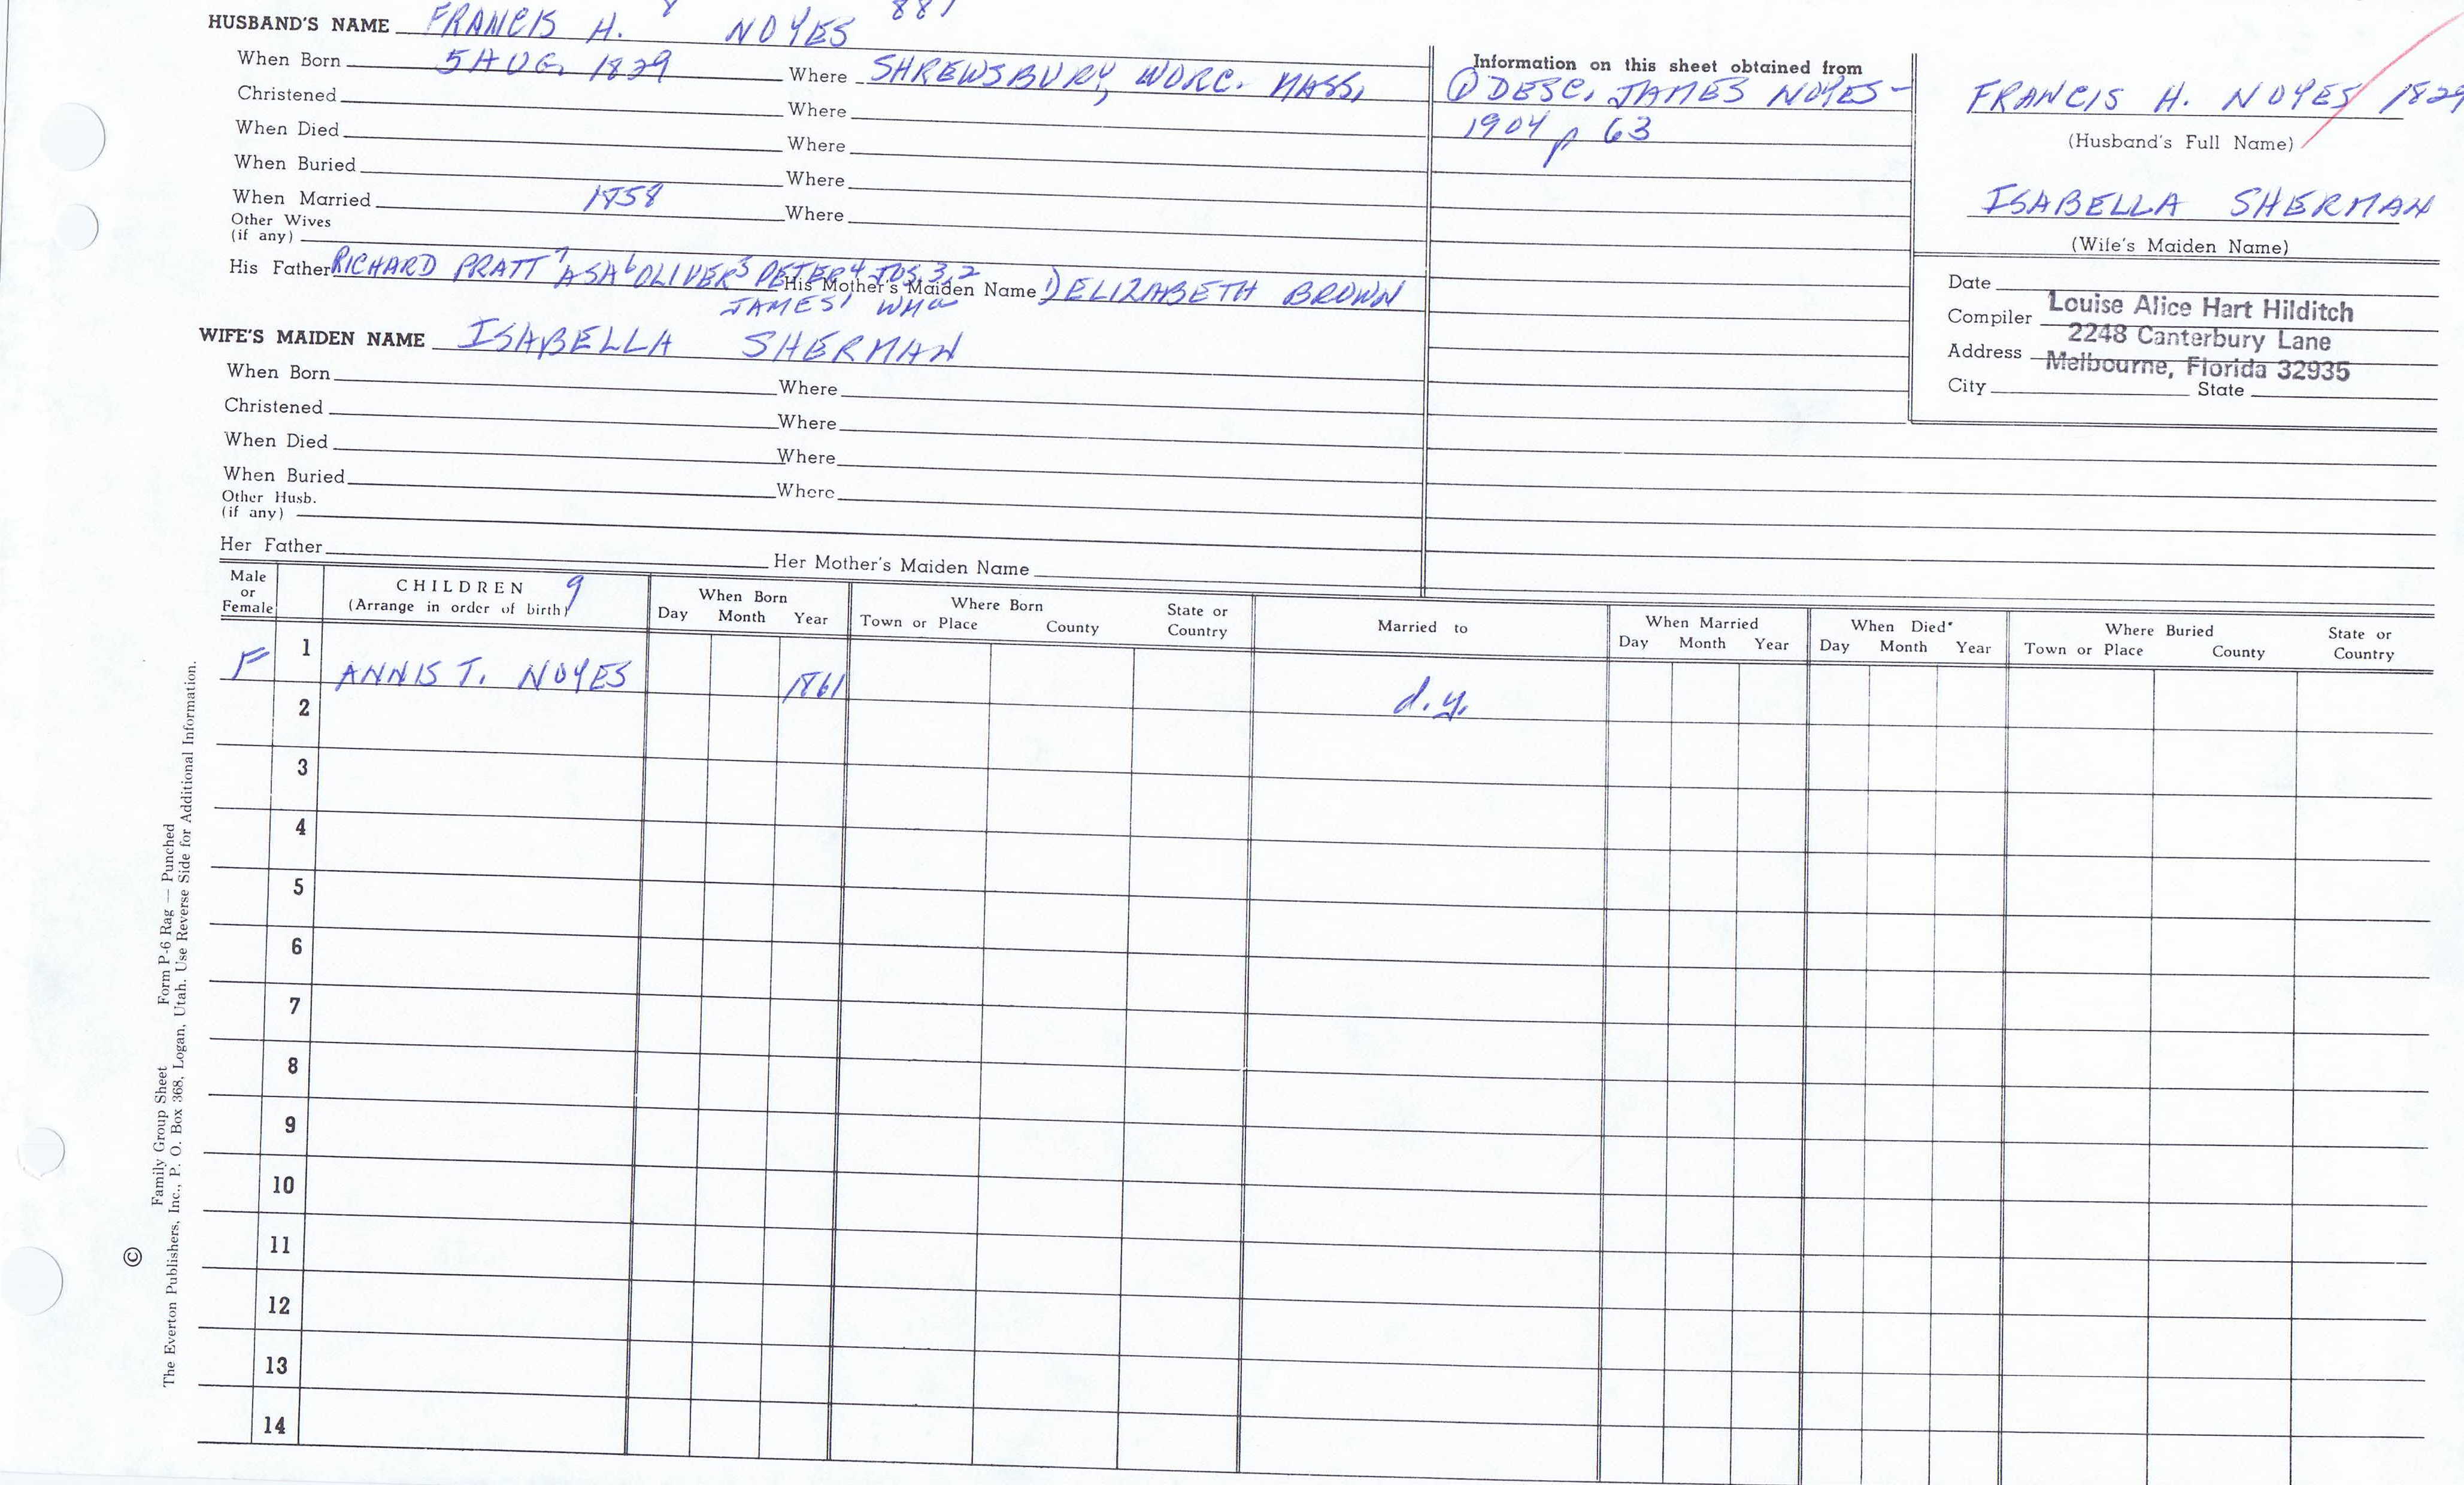 HUSBAND'S NAME FRANCIS H. 8 NOYES 887
When Born 5 AUG. 1829 Where SHREWSBURY, WORC. MASS.
Christened Where
When Died Where
When Buried Where
When Married 1858 Where
Other Wives
(if any)
His Father RICHARD PRATT 7 ASA 6 OLIVER 5 PETER 4 JOS. 3,2 His Mother's Maiden Name 1) ELIZABETH BROWN
JAMES 1 WM a
WIFE'S MAIDEN NAME ISABELLA SHERMAN
When Born Where
Christened Where
When Died Where
When Buried Where
Other Husb.
(if any)
Her Father Her Mother's Maiden Name
Information on this sheet obtained from
① DESC. JAMES NOYES-
1904 p 63
FRANCIS H. NOYES 1829
(Husband's Full Name)
ISABELLA SHERMAN
(Wife's Maiden Name)
Date
Compiler Louise Alice Hart Hilditch
Address 2248 Canterbury Lane
Melbourne, Florida 32935
City State
Male or Female CHILDREN 9 (Arrange in order of birth) When Born Day Month Year Where Born Town or Place County State or Country Married to When Married Day Month Year When Died* Day Month Year Where Buried Town or Place County State or Country
F 1 ANNIS T. NOYES 1861 d.y.
2
3
4
5
6
7
8
9
10
11
12
13
14
© Family Group Sheet Form P-6 Rag — Punched
The Everton Publishers, Inc., P. O. Box 368, Logan, Utah. Use Reverse Side for Additional Information.